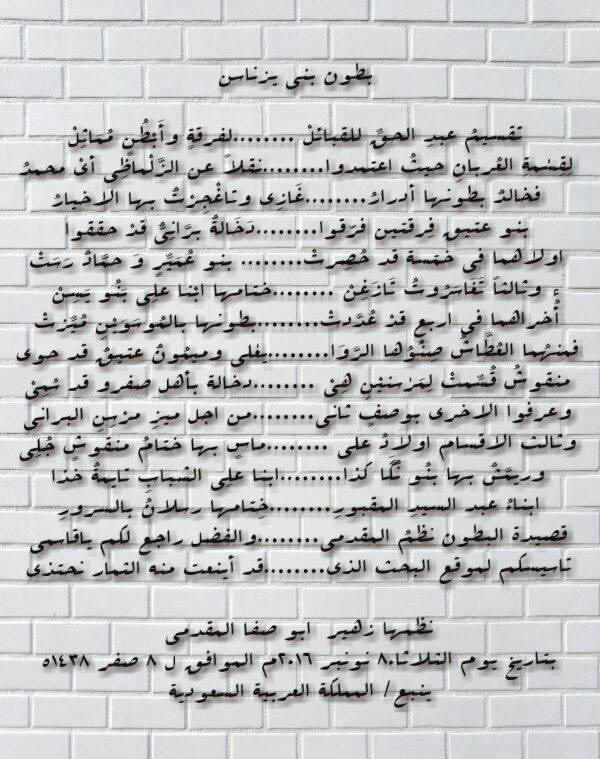 بطون بنى يزناسن
تقسيمُ عبدِ الحقِّ للقبائلْ ........لفرقةٍ وأَبْطُنٍ تُمَاثِلْ
لِقِسْمةِ العُربانِ حيثُ اعتمدوا.........نقلاً عن الزَّلْماطِى أىْ محمدُ
فخالدٌ بطونها أدرارُ........غَازِى وتاغْجِرْتُ بها الاخيارُ
بنو عتيقٍ فِرقتين فرقوا.........دَخَالةُ برَّانِىٌّ قدْ حققوا
اولاهما فى خمسة قد حُصِرتْ......... بنو عُمَيِّرٍ وَ حمَّادُ رسَتْ
وثالثاً تَغَاسَرُوتُ تَازَغِنْ ........ختامها ابنا علِى بَنُو يَسِنْ
أُخراهما فى اربعٍ قدْ عُدَّدتْ.........بطونها بالمُوسَوَيْنِ مُيِّزتْ
فمنهُما العُطَّاشُ صنْوُها الرَّوَا.........يعْلى وميمُونُ عتيقٌ قد حوى
منقوشُ قُسِّمتْ لِعَرْسَنيْنِ هِىْ .........دخالة بأهل صفرو قد سُمِىْ
وعرفوا الاخرى بوصفٍ ثانى.........من اجل ميزِ عرْسِنِ البرانى
وثالث الاقسام اولادُ على .........ماسٍ بها ختامُ منقوشٍ جُلِى
وريمَّشُ بها بنُو تُكَّا كذا.........ابنا على الشبابِ تايمةُ خذا
ابناءُ عبد السيدِ المقبورِ.........خِتامها رسلانُ بالسرورِ
قصيدة البطون نظمُ المقدمى.........والفضل راجع لكم ياقاسمى
تاسيسكم لموقع البحث الذى........قد أينعت منه الثمار نحتذى
نظمها زهير ابو صفا المقدمى
بتاريخ يوم الثلاثاء٨٠ نونبر ٢٠١٦م الموافق ل ٨ صفر ١٤٣٨ه
ينبع / المملكة العربية السعودية